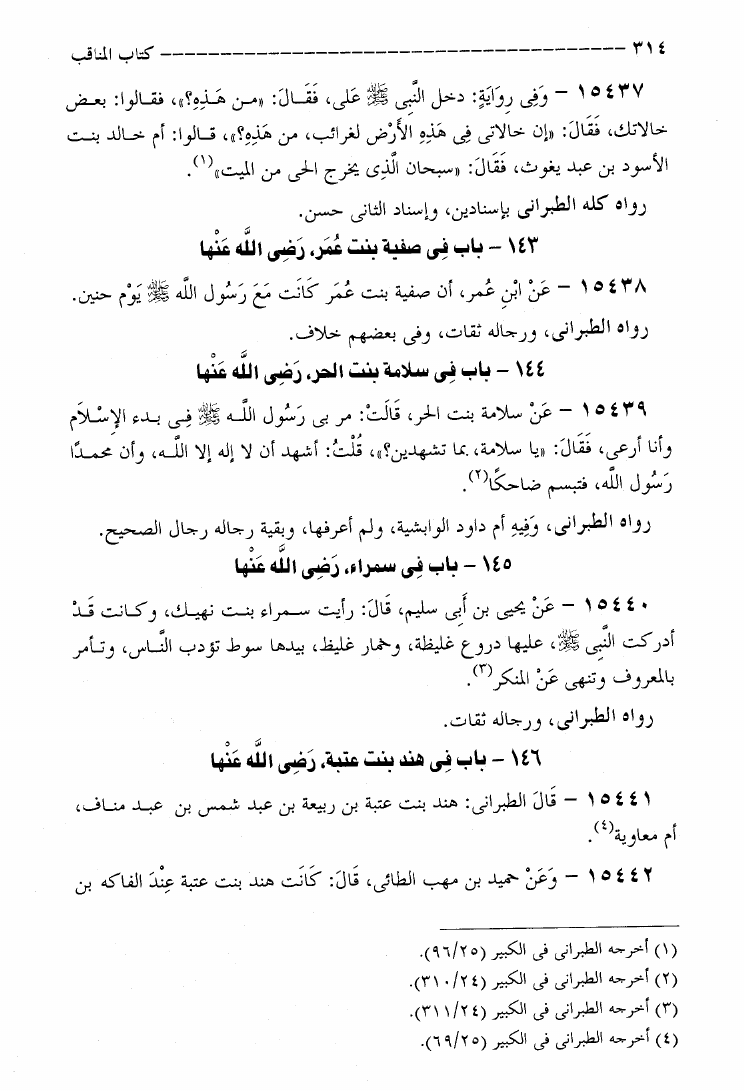 ٣١٤ ------------------------------------------ كتاب المناقب
١٥٤٣٧ – وَفِى رِوَايَةٍ: دخل النَّبِى ﷺ عَلى، فَقَالَ: «مـن هَـذِهِ؟»، فقـالوا: بعـض
خالاتك، فَقَالَ: «إن خالاتى فِى هَذِهِ الأَرْض لغرائب، من هَذِهِ؟»، قـالوا: أم خـالد بنـت
الأسود بن عبد يغوث، فَقَالَ: «سبحان الَّذِى يخرج الحى من الميت»(١).
رواه كله الطبرانى بإسنادين، وإسناد الثانى حسن.
١٤٣ – باب فِى صفية بنت عُمَر، رَضِى اللَّه عَنْها
١٥٤٣٨ – عَنْ ابْنِ عُمر، أن صفية بنت عُمَر كَانَت مَعَ رَسُول اللَّه ﷺ يَوْم حنين.
رواه الطبرانى، ورجاله ثقات، وفى بعضهم خلاف.
١٤٤ – باب فِى سلامة بنت الحر، رَضِى اللَّه عَنْها
١٥٤٣٩ – عَنْ سلامة بنت الحر، قَالَتْ: مر بى رَسُول اللَّـه ﷺ فِـى بدء الإِسْـلاَم
وأنا أرعى، فَقَالَ: «يا سلامة، بما تشهدين؟»، قُلْتُ: أشهد أن لا إله إلا اللَّـه، وأن محمـدًا
رَسُول اللَّه، فتبسم ضاحكًا(٢).
رواه الطبرانى، وَفِيهِ أم داود الوابشية، ولم أعرفها، وبقية رجاله رجال الصحيح.
١٤٥ – باب فِى سمراء، رَضِى اللَّه عَنْها
١٥٤٤٠ – عَنْ يحيى بن أَبِى سليم، قَالَ: رأيت سـمراء بنـت نهيـك، وكـانت قَـدْ
أدركت النَّبِى ﷺ، عليها دروع غليظة، وخمار غليظ، بيدها سوط تؤدب النَّـاس، وتـأمر
بالمعروف وتنهى عَنْ المنكر(٣).
رواه الطبرانى، ورجاله ثقات.
١٤٦ – باب فِى هند بنت عتبة، رَضِى اللَّه عَنْها
١٥٤٤١ – قَالَ الطبرانى: هند بنت عتبة بن ربيعة بن عبد شمس بن عبـد منـاف،
أم معاوية(٤).
١٥٤٤٢ – وَعَنْ حميد بن مهب الطائى، قَالَ: كَانَت هند بنت عتبة عِنْدَ الفاكه بن
(١) أخرجه الطبرانى فى الكبير (٩٦/٢٥).
(٢) أخرجه الطبرانى فى الكبير (٣١٠/٢٤).
(٣) أخرجه الطبرانى فى الكبير (٣١١/٢٤).
(٤) أخرجه الطبرانى فى الكبير (٦٩/٢٥).